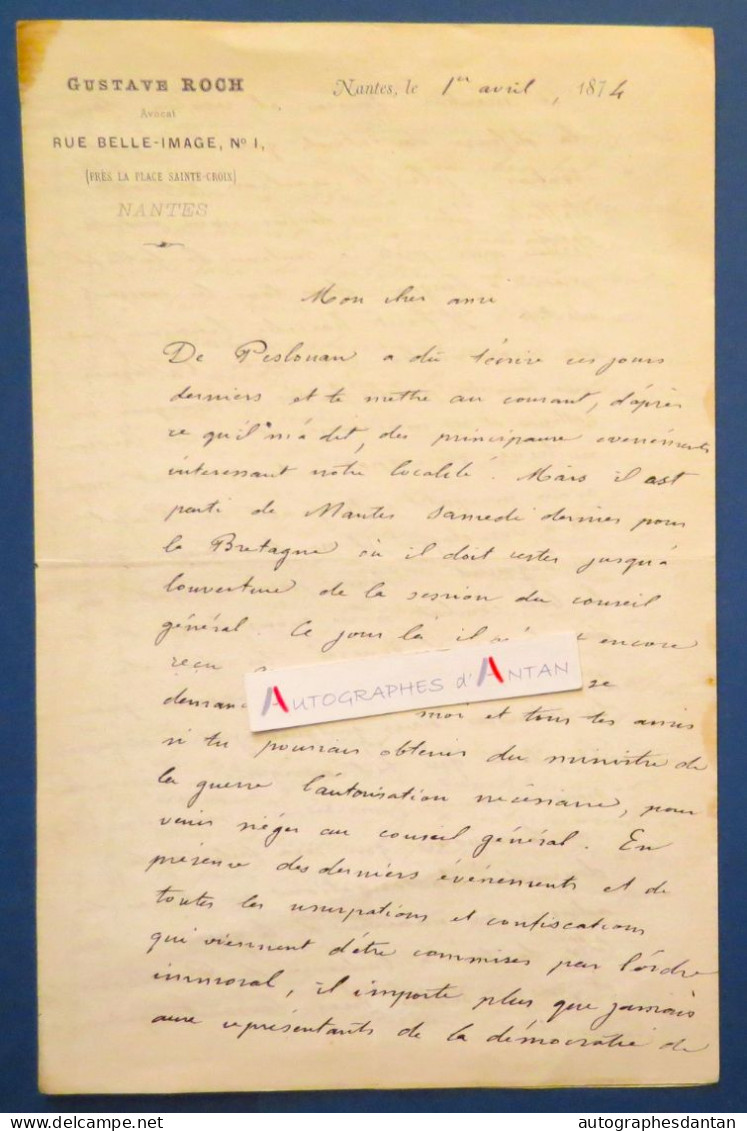 GUSTAVE ROCH
Avocat
RUE BELLE-IMAGE, No 1,
(PRÈS LA PLACE SAINTE-CROIX)
NANTES
Nantes, le 1er avril, 1874
Mon cher ami
De Peslouan a dû t'écrire ces jours
derniers et te mettre au courant, d'après
ce qu'il m'a dit, des principaux evenements
interessant notre localité. Mais il est
parti de Nantes samedi dernier pour
la Bretagne où il doit rester jusqu'à
l'ouverture de la session du conseil
général. Ce jour là il encore
reçu
moi et tous tes amis
si tu pourrais obtenir du ministre de
la guerre l'autorisation nécessaire, pour
venir siéger au conseil général. En
présence des derniers événements et de
toutes les usurpations et confiscations
qui viennent d'être commises par l'ordre
immoral, il importe plus que jamais
aux représentants de la démocratie de
AUTOGRAPHES d'ANTAN
autographesdantan